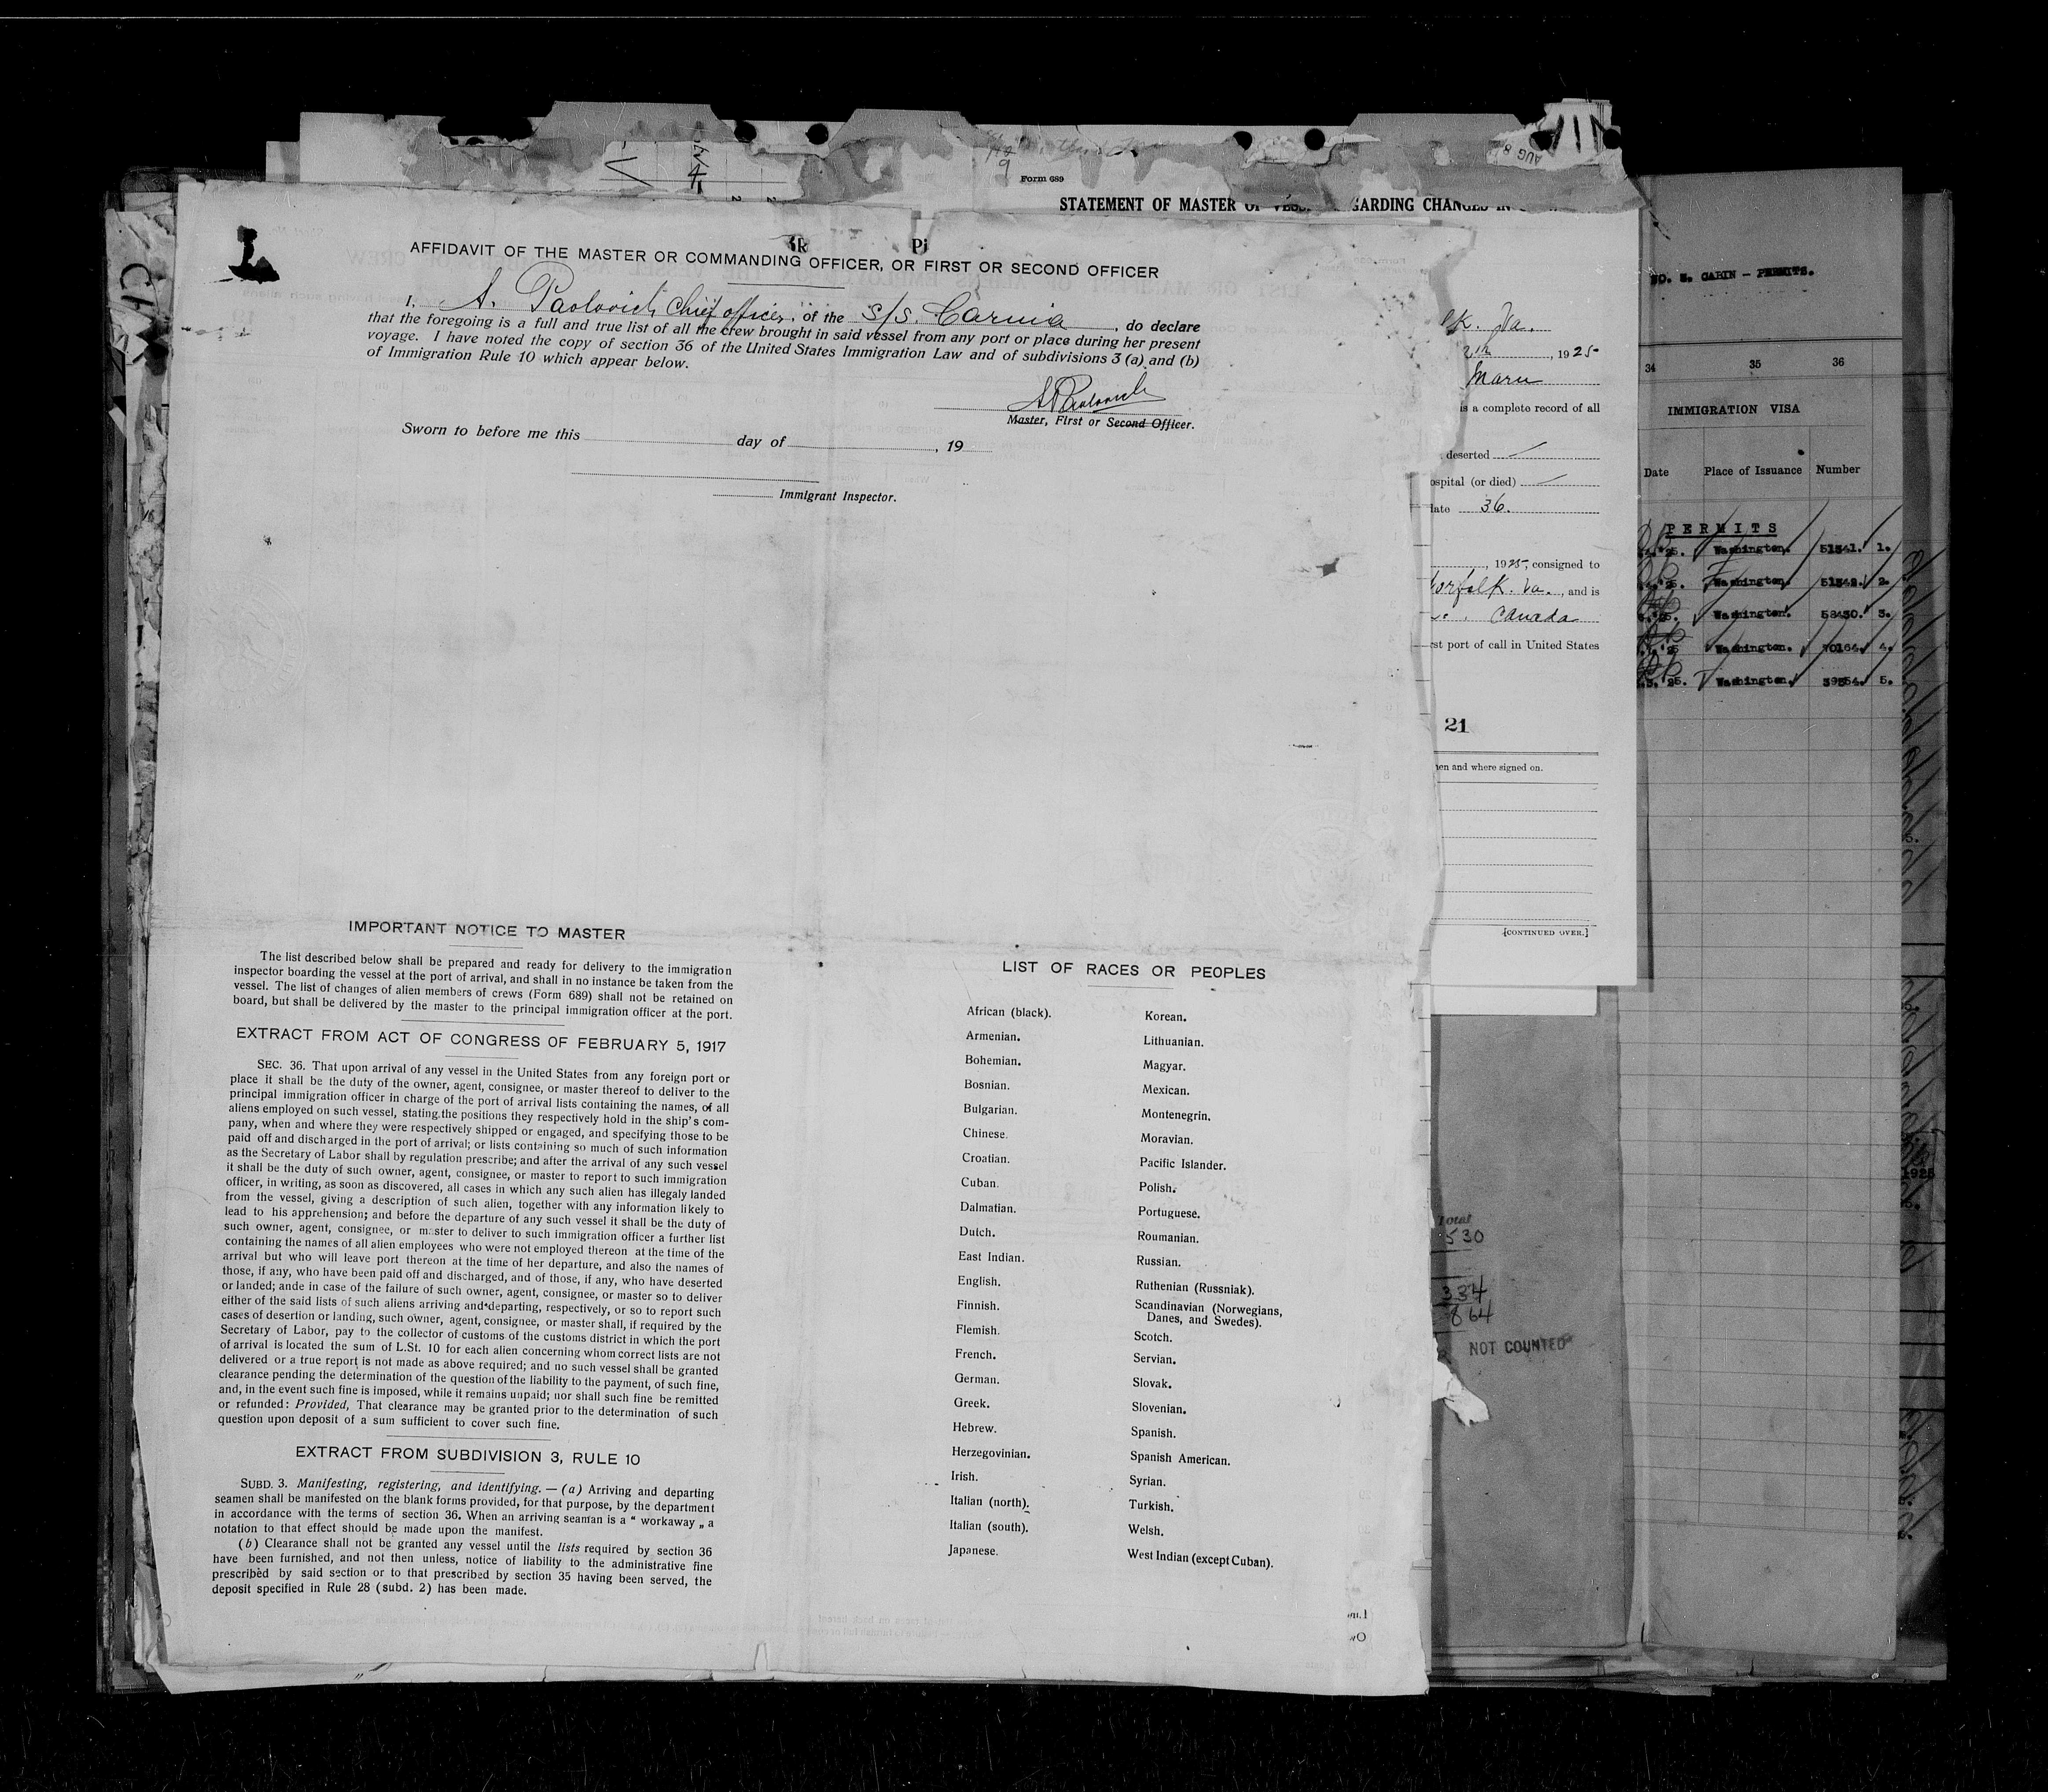 AUG 8
9
Form 689
STATEMENT OF MASTER OF VESSEL REGARDING CHANGES IN
AFFIDAVIT OF THE MASTER OR COMMANDING OFFICER, OR FIRST OR SECOND OFFICER
I, A. Pavlovich Chief officer, of the s/s. Carnia, do declare
that the foregoing is a full and true list of all the crew brought in said vessel from any port or place during her present
voyage. I have noted the copy of section 36 of the United States Immigration Law and of subdivisions 3 (a) and (b)
of Immigration Rule 10 which appear below.
A Pavlovich
Master, First or Second Officer.
Sworn to before me this day of , 19
Immigrant Inspector.
IMPORTANT NOTICE TO MASTER
The list described below shall be prepared and ready for delivery to the immigration
inspector boarding the vessel at the port of arrival, and shall in no instance be taken from the
vessel. The list of changes of alien members of crews (Form 689) shall not be retained on
board, but shall be delivered by the master to the principal immigration officer at the port.
EXTRACT FROM ACT OF CONGRESS OF FEBRUARY 5, 1917
SEC. 36. That upon arrival of any vessel in the United States from any foreign port or
place it shall be the duty of the owner, agent, consignee, or master thereof to deliver to the
principal immigration officer in charge of the port of arrival lists containing the names, of all
aliens employed on such vessel, stating the positions they respectively hold in the ship's com-
pany, when and where they were respectively shipped or engaged, and specifying those to be
paid off and discharged in the port of arrival; or lists containing so much of such information
as the Secretary of Labor shall by regulation prescribe; and after the arrival of any such vessel
it shall be the duty of such owner, agent, consignee, or master to report to such immigration
officer, in writing, as soon as discovered, all cases in which any such alien has illegaly landed
from the vessel, giving a description of such alien, together with any information likely to
lead to his apprehension; and before the departure of any such vessel it shall be the duty of
such owner, agent, consignee, or master to deliver to such immigration officer a further list
containing the names of all alien employees who were not employed thereon at the time of the
arrival but who will leave port thereon at the time of her departure, and also the names of
those, if any, who have been paid off and discharged, and of those, if any, who have deserted
or landed; ande in case of the failure of such owner, agent, consignee, or master so to deliver
either of the said lists of such aliens arriving and departing, respectively, or so to report such
cases of desertion or landing, such owner, agent, consignee, or master shall, if required by the
Secretary of Labor, pay to the collector of customs of the customs district in which the port
of arrival is located the sum of L.St. 10 for each alien concerning whom correct lists are not
delivered or a true report is not made as above required; and no such vessel shall be granted
clearance pending the determination of the question of the liability to the payment, of such fine,
and, in the event such fine is imposed, while it remains unpaid; nor shall such fine be remitted
or refunded: Provided, That clearance may be granted prior to the determination of such
question upon deposit of a sum sufficient to cover such fine.
EXTRACT FROM SUBDIVISION 3, RULE 10
SUBD. 3. Manifesting, registering, and identifying. — (a) Arriving and departing
seamen shall be manifested on the blank forms provided, for that purpose, by the department
in accordance with the terms of section 36. When an arriving seaman is a “ workaway „ a
notation to that effect should be made upon the manifest.
(b) Clearance shall not be granted any vessel until the lists required by section 36
have been furnished, and not then unless, notice of liability to the administrative fine
prescribed by said section or to that prescribed by section 35 having been served, the
deposit specified in Rule 28 (subd. 2) has been made.
LIST OF RACES OR PEOPLES
African (black).
Armenian.
Bohemian.
Bosnian.
Bulgarian.
Chinese.
Croatian.
Cuban.
Dalmatian.
Dutch.
East Indian.
English.
Finnish.
Flemish.
French.
German.
Greek.
Hebrew.
Herzegovinian.
Irish.
Italian (north).
Italian (south).
Japanese.
Korean.
Lithuanian.
Magyar.
Mexican.
Montenegrin.
Moravian.
Pacific Islander.
Polish.
Portuguese.
Roumanian.
Russian.
Ruthenian (Russniak).
Scandinavian (Norwegians,
Danes, and Swedes).
Scotch.
Servian.
Slovak.
Slovenian.
Spanish.
Spanish American.
Syrian.
Turkish.
Welsh.
West Indian (except Cuban).
lk. Va.
, 1925
Maru
is a complete record of all
deserted
ospital (or died)
date 36.
, 1925, consigned to
Norfolk. Va., and is
Canada
rst port of call in United States
21
hen and where signed on.
[CONTINUED OVER.]
Total
530
334
864
NOT COUNTED
CABIN – PERMITS.
34 35 36
IMMIGRATION VISA
Date Place of Issuance Number
PERMITS
25. Washington. 51341. 1.
25. Washington. 51342. 2.
25. Washington. 58430. 3.
25 Washington. 70164. 4.
25. Washington. 39554. 5.
1925